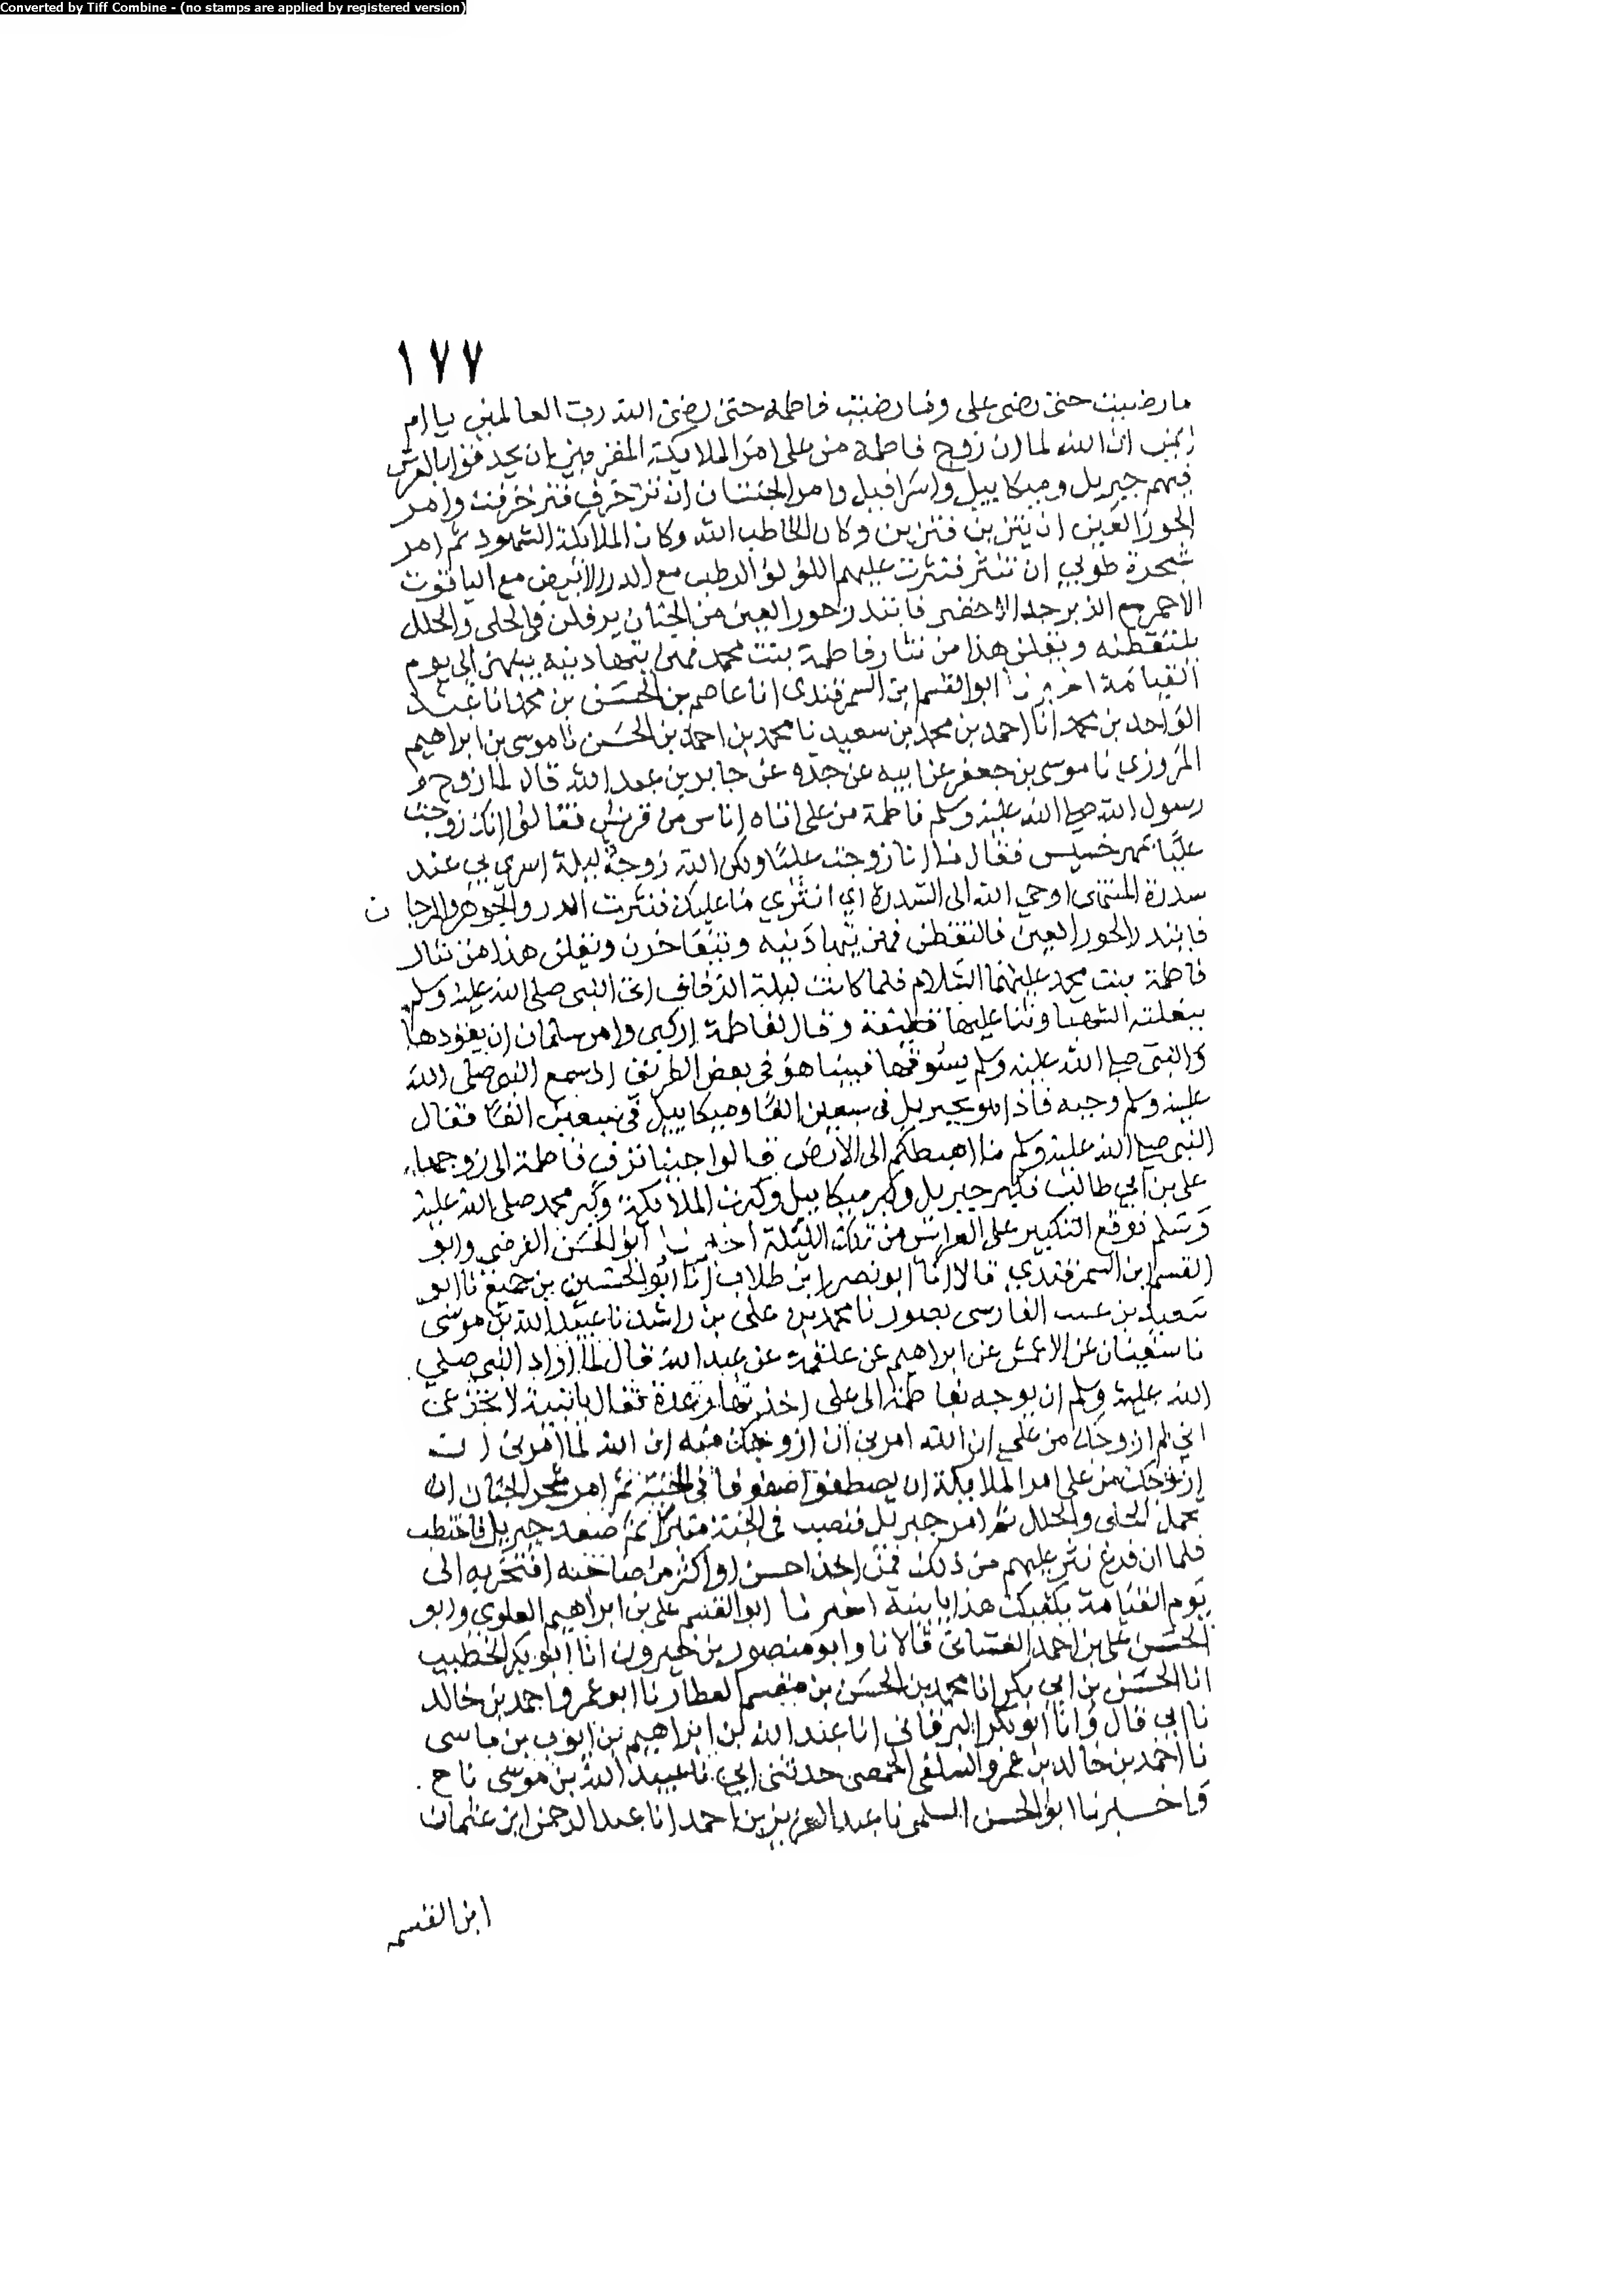 Converted by Tiff Combine - (no stamps are applied by registered version)
١٧٧
ما رضيت حتى رضى على وما رضيت فاطمة حتى رضى الله رب العالمين يا ام
ايمن ان الله لما ان زوج فاطمة من على امر الملايكة المقربين ان يحدقوا بالعرش
فيهم جبريل وميكاييل واسرافيل وامر الجنان ان تزخرف فتزخرفت وامر
الحور العين ان يتزين فتزين وكان الخاطب الله وكان الملائكة الشهود ثم امر
شجرة طوبي ان تنثر فنثرت عليهم اللؤلؤ الرطب مع الدر الابيض مع الياقوت
الاحمر مع الزبرجد الاخضر فابتدر حور العين من الجنان يرفلن في الحلى والحلل
يلتقطنه ويقلن هذا من نثار فاطمة بنت محمد فهن يتهادينه بينهن الى يوم
القيامة اخبرنا ابو القسم ابن السمرقندى انا عاصم بن الحسن بن محمد انا عبد
الواحد بن محمد انا احمد بن محمد بن سعيد نا محمد بن احمد بن الحسن نا موسى بن ابراهيم
المروزي نا موسى بن جعفر عن ابيه عن جده عن جابر بن عبد الله قال لما زوج
رسول الله صلى الله عليه وسلم فاطمة من على اتاه اناس من قريش فقالوا انك زوجت
عليا بمهر خسيس فقال ما انا زوجت عليا ولكن الله زوجه ليلة اسري بي عند
سدرة المنتهى اوحى الله الى السدرة اي انثري ما عليك فنثرت الدر والجوهر والمرجان
فابتدر الحور العين فالتقطن فهن يتهادينه ويتفاخرن ويقلن هذا من نثار
فاطمة بنت محمد عليهما السلام فلما كانت ليلة الزفاف اتى النبى صلى الله عليه وسلم
ببغلته الشهبا وثنا عليها قطيفة وقال لفاطمة اركبى وامر سلمان ان يقودها
والنبى صلى الله عليه وسلم يسوقها فبينا هو فى بعض الطريق اذ سمع النبى صلى الله
عليه وسلم وجبه فاذا هو بجبريل فى سبعين الفا وميكاييل في سبعين الفا فقال
النبى صلى الله عليه وسلم ما اهبطكم الى الارض قالوا جينا نزف فاطمة الى زوجها
على بن ابي طالب فكبر جبريل وكبر ميكاييل وكبرت الملائكة وكبر محمد صلى الله عليه
وسلم فوقع التكبير على العرايس من تلك الليلة اخبرنا ابو الحسن الفرضى وابو
القسم ابن السمرقندي قالا انا ابو نصر ابن طلاب انا ابو الحسين بن جميع نا ابو
سعيد بن الفارسى بصور نا محمد بن على بن راشد نا عبيد الله بن موسى
نا سفينان عن الاعمش عن ابراهيم عن علقمة عن عبد الله قال لما اراد النبى صلي
الله عليه وسلم ان يوجه بفاطمة الى على اخذتها رعدة فقال يا بنية لا تجزعى
اني لم ازوجك من على ان الله امرنى ان ازوجك منه ان الله لما امرنى ان
ازوجك من على امر الملايكة ان يصطفوا صفوفا فى الجنة ثم امر شجر الجنان ان
تحمل الحلى والحلل ثم امر جبريل فنصب فى الجنة منبرا ثم صعد جبريل فاختطب
فلما ان فرغ نثر عليهم من ذلك فمن اخذ احسن او اكثر من صاحبه افتخر به الى
يوم القيامة يكفيك هذا يا بنية اخبرنا ابو القسم على بن ابراهيم العلوى وابو
الحسن على بن احمد الغسانى قالا نا وابو منصور بن خيرون انا ابو بكر الخطيب
انا الحسن بن ابي بكر انا محمد بن الحسن بن مقسم العطار نا ابو عمرو احمد بن خالد
نا ابي قال وانا ابو بكر البرقانى انا عبد الله بن ابراهيم بن ايوب بن ماسى
نا احمد بن خالد بن عمرو السلفى الحمصى حدثنى ابي نا عبيد الله بن موسى نا ح
واخبرنا ابو الحسن السلمى نا عبد العزيز بن احمد انا عبد الرحمن ابن عثمان
ابن القسم